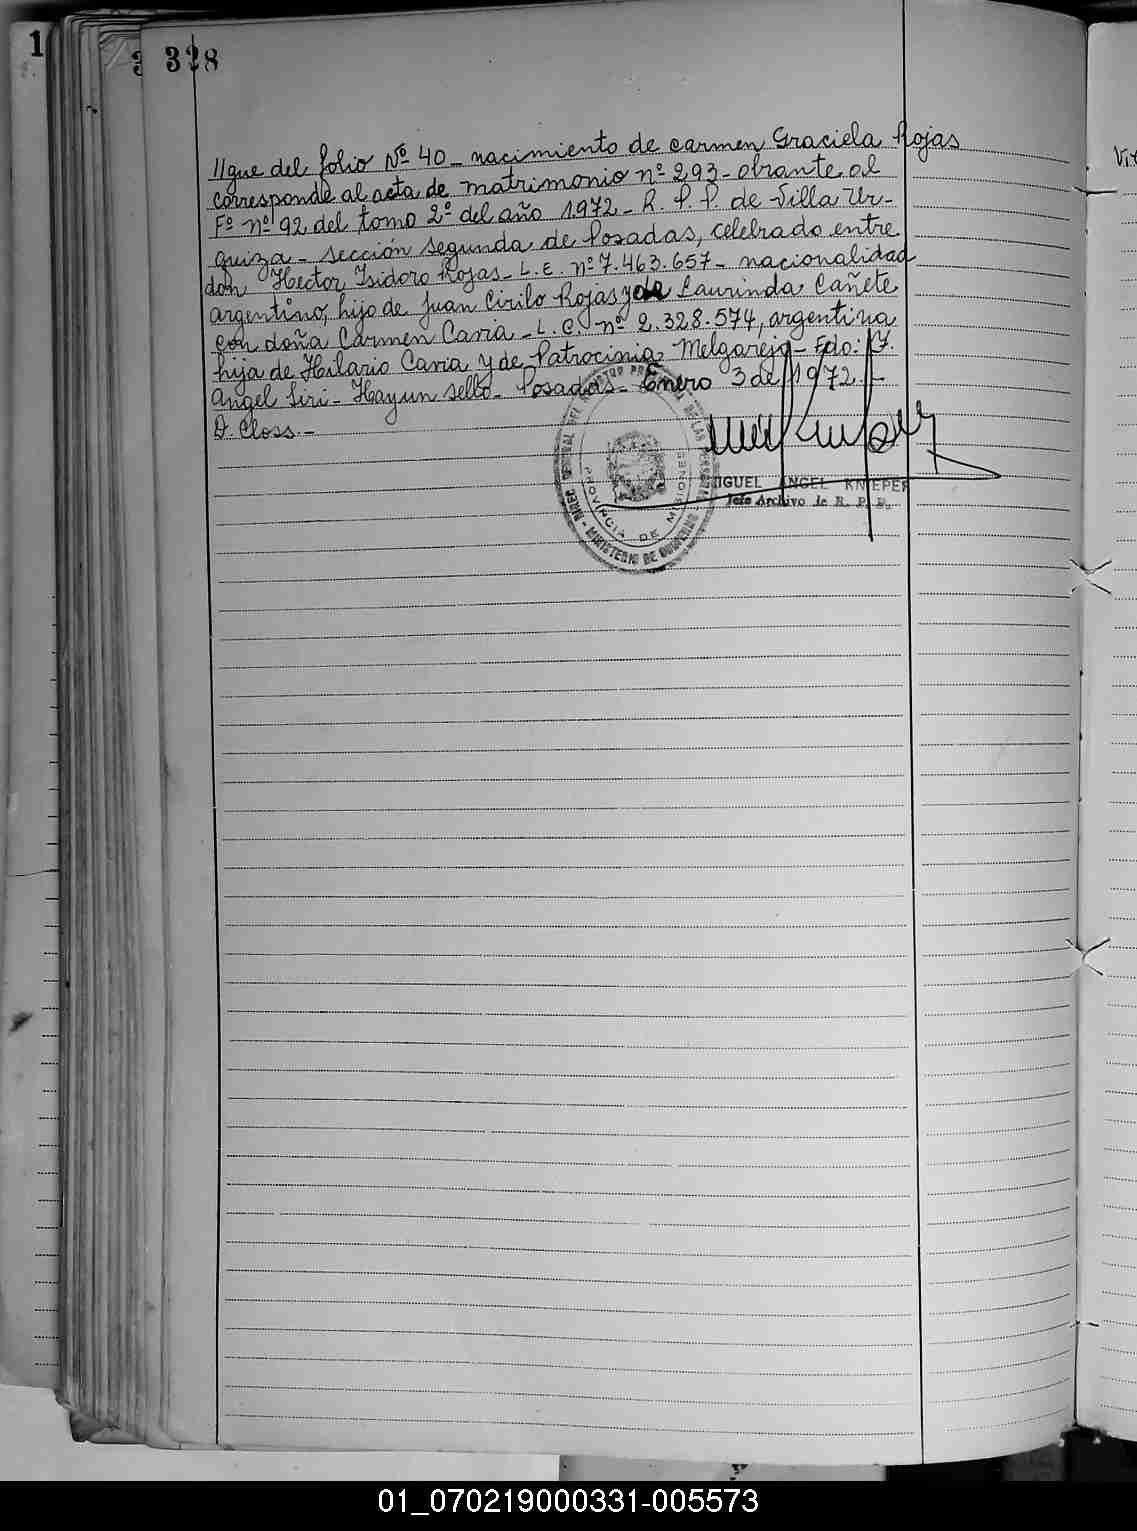 1
3
328
//gue del folio Nº 40_ nacimiento de Carmen Graciela Rojas
corresponde al acta de matrimonio nº 293- obrante al
Fº nº 92 del tomo 2º del año 1972_ R. P. P. de Villa Ur-
quiza - sección segunda de Posadas, celebrado entre
don Hector Isidoro Rojas_ L. E. nº 7.463.657- nacionalidad
argentino, hijo de Juan Cirilo Rojas y de Laurinda Cañete
con doña Carmen Caria_ L. C. nº 2.328.574, argentina
hija de Hilario Caria y de Patrocinia Melgarejo_ Fdo: F.
Angel Siri_ Hay un sello_ Posadas_ Enero 3 de 1972._
D. Closs._
DIREC. GENERAL DEL REGISTRO PROVINCIAL DE LAS PERSONAS - MINISTERIO DE GOBIERNO
PROVINCIA DE MISIONES
MIGUEL ANGEL KNIEPER
Jefe Archivo de R. P. P.
01_070219000331-005573